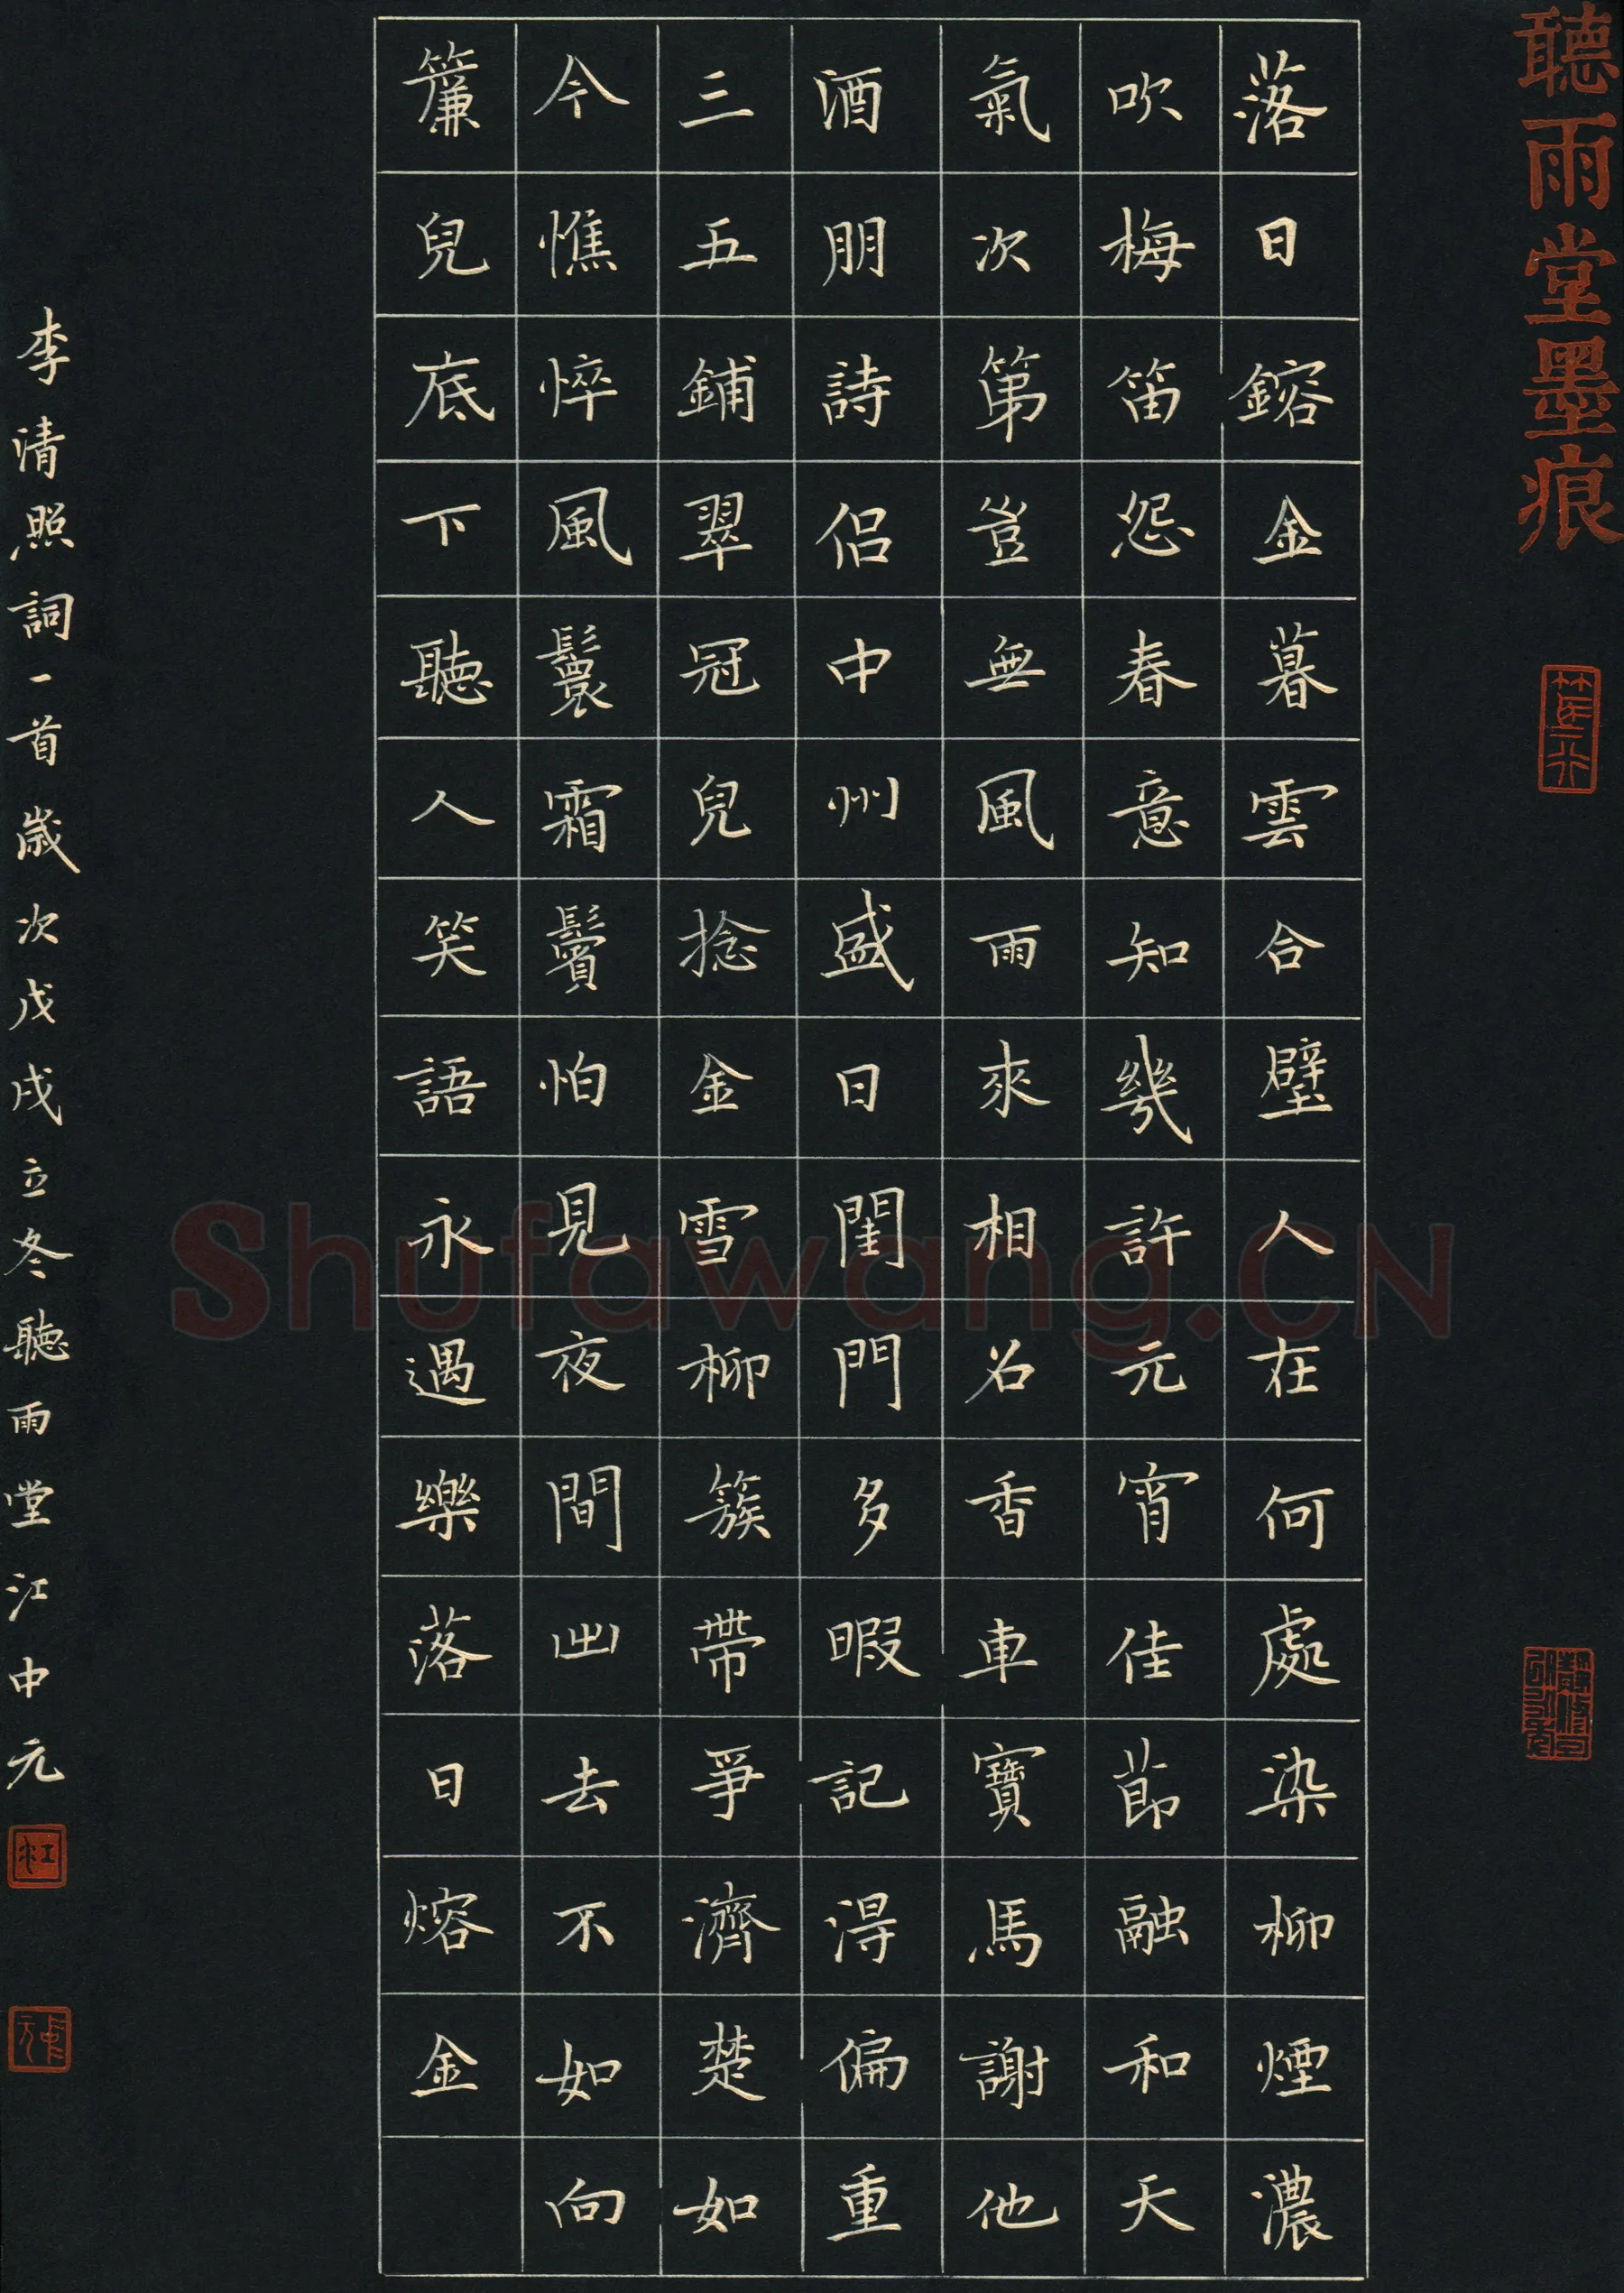 聽雨堂墨痕
落日鎔金暮雲合璧人在何處染柳煙濃
吹梅笛怨春意知幾許元宵佳節融和天
氣次第豈無風雨來相召香車寶馬謝他
酒朋詩侶中州盛日閨門多暇記得偏重
三五鋪翠冠兒捻金雪柳簇帶爭濟楚如
今憔悴風鬟霜鬢怕見夜間出去不如向
簾兒底下聽人笑語永遇樂落日熔金
李清照詞一首歲次戊戌立冬聽雨堂江中元
Shufawang.CN